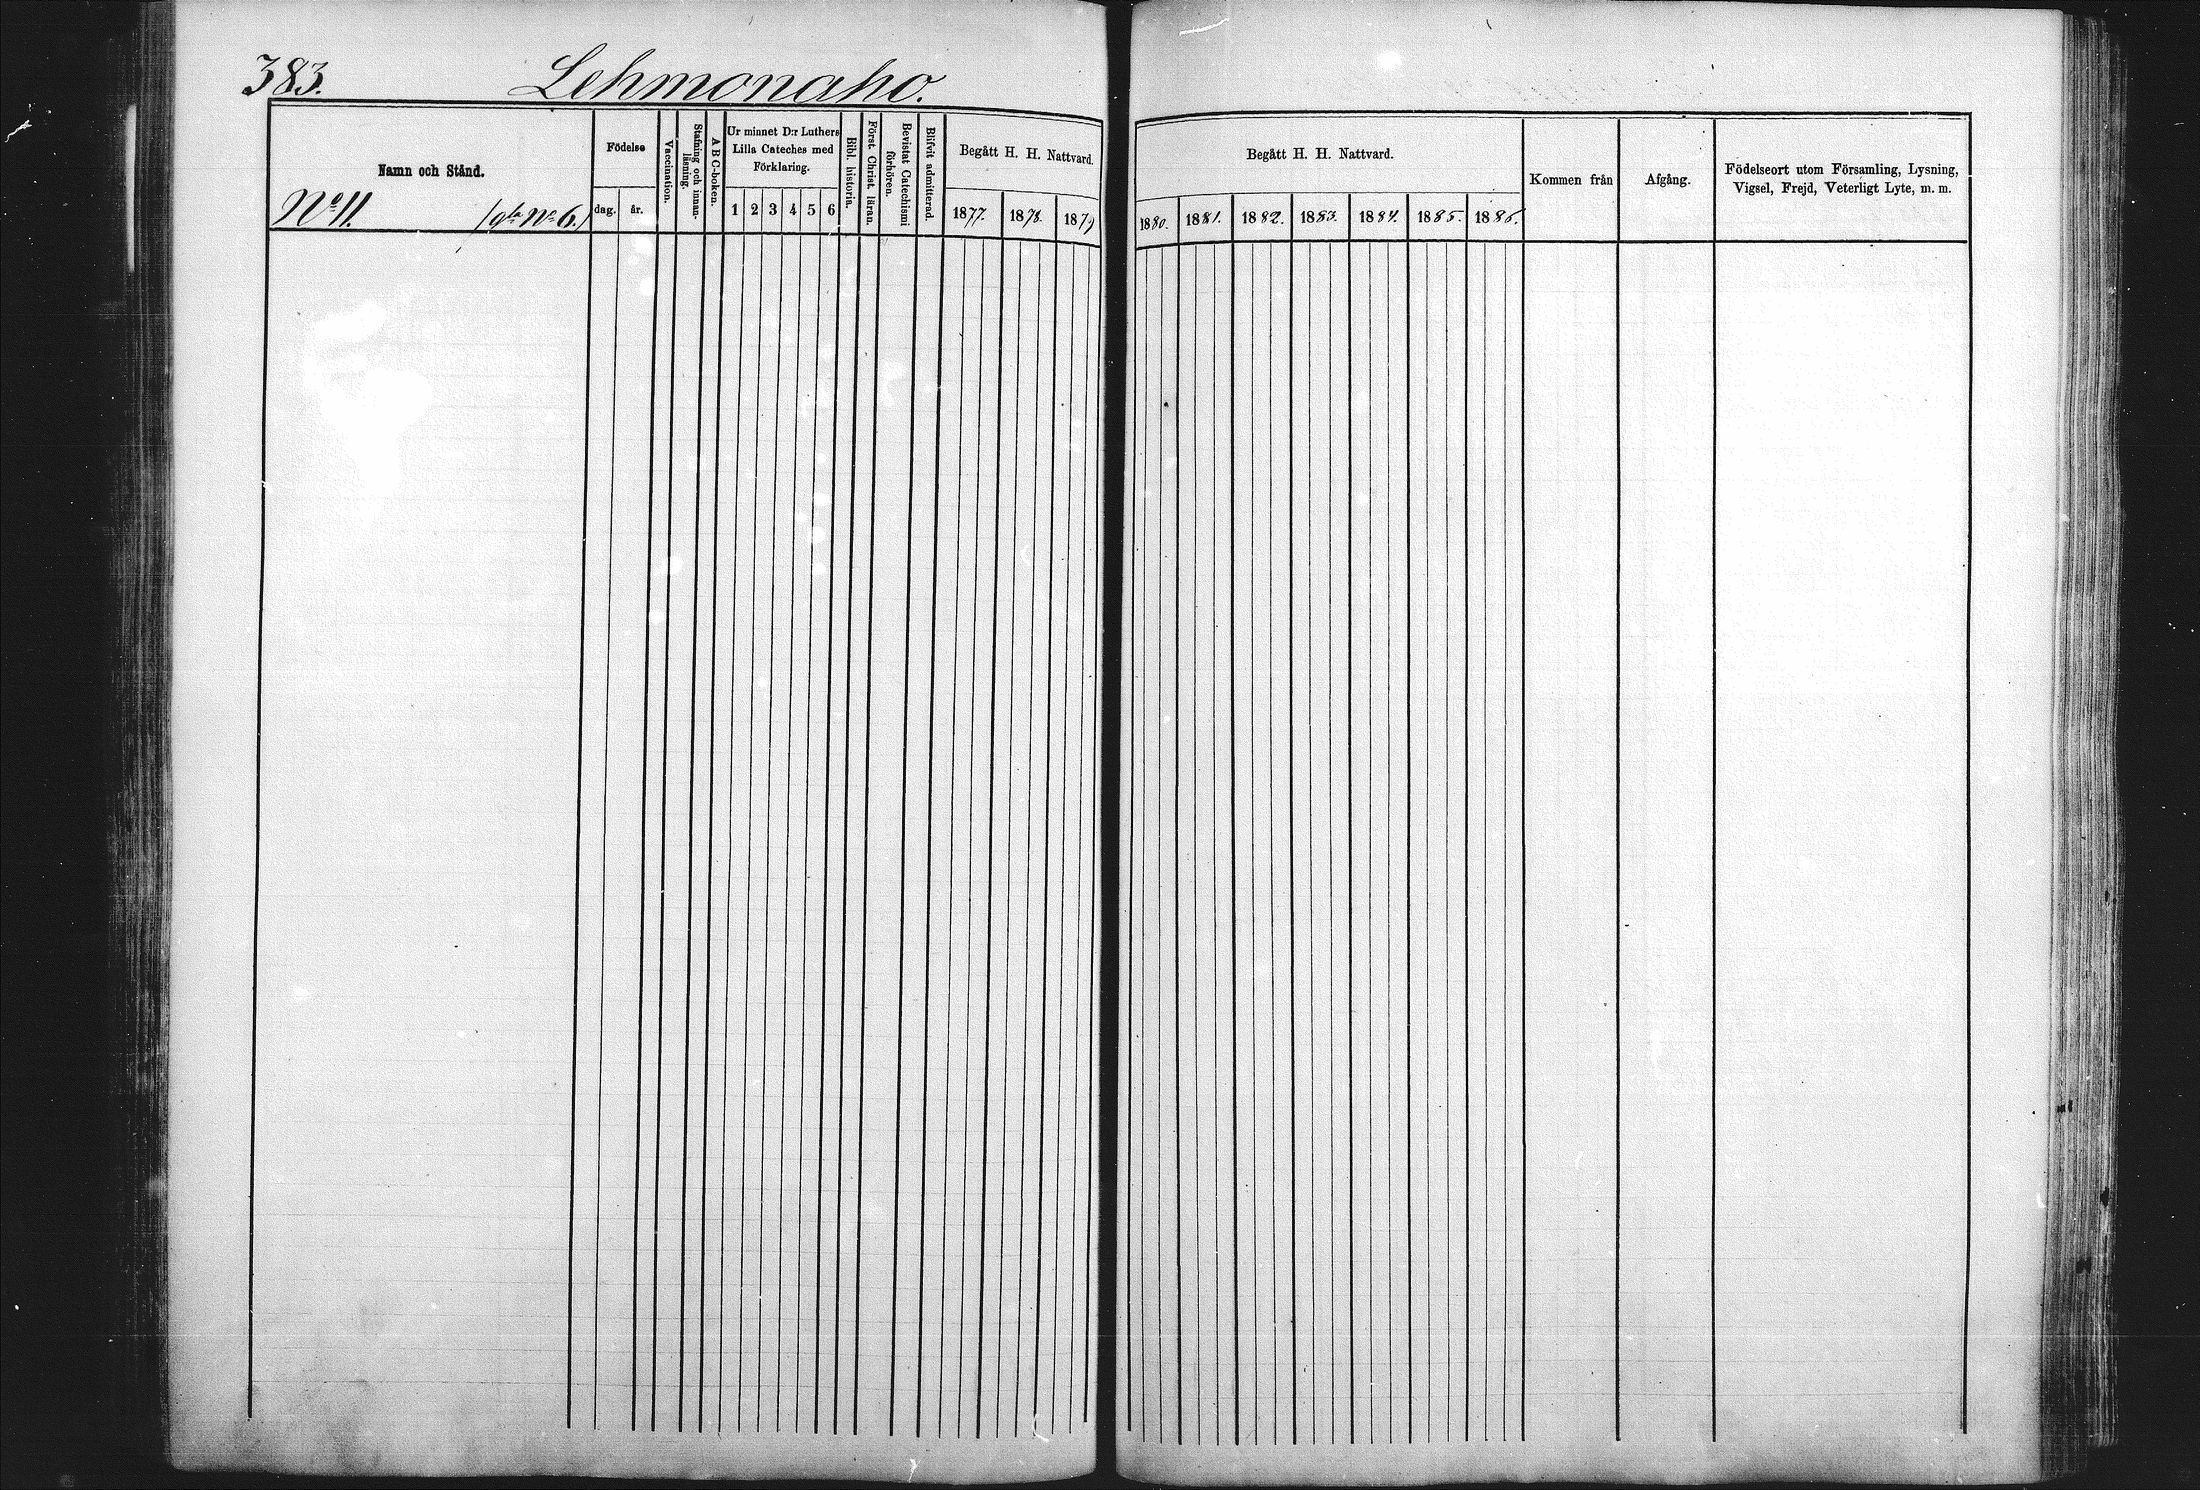 383. Lehmonaho.
Namn och Stånd.
No 11. (gla No 6.)
Födelse
dag. år.
Vaccination.
Stafning och innan-
läsning.
A B C-boken.
Ur minnet D:r Luthers
Lilla Cateches med
Förklaring.
1 2 3 4 5 6
Bibl. historia.
Först. Christ. läran.
Bevistat Catechismi
förhören.
Blifvit admitterad.
Begått H. H. Nattvard.
1877. 1878. 1879
Begått H. H. Nattvard.
1880. 1881. 1882. 1883. 1884. 1885. 1886.
Kommen från
Afgång.
Födelseort utom Församling, Lysning,
Vigsel, Frejd, Veterligt Lyte, m. m.